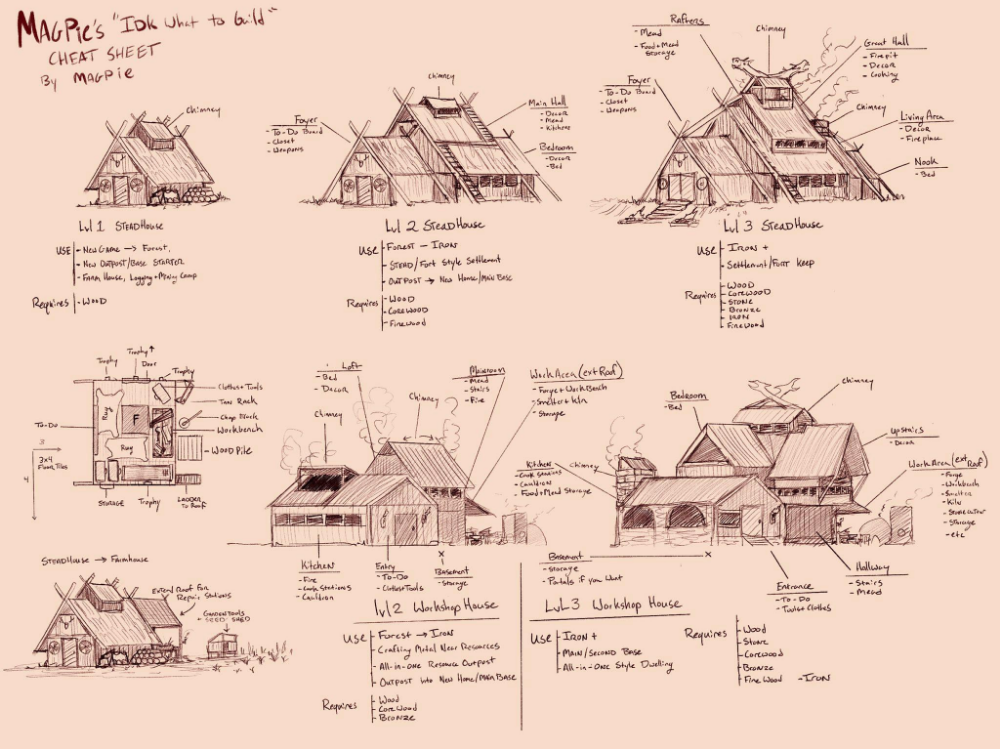 MAGPIE'S "IDK What to Build"
CHEAT SHEET
By MAGPIE
Chimney
Lvl 1 STEADHOUSE
USE
- New Game → Forest,
- New Outpost/Base STARTER
- Farm House, Logging + Mining Camp
Requires
- WOOD
Chimney
Foyer
- To-Do Board
- Closet
- Weapons
Main Hall
- Decor
- Mead
- Kitchen
Bedroom
- Decor
- Bed
Lvl 2 STEADHOUSE
USE
- FOREST - IRON
- STEAD/Fort Style Settlement
- OUTPOST → New Home/MAIN BASE
Requires
- WOOD
- COREWOOD
- FineWood
Rafters
- Mead
- Food + Mead
Storage
Chimney
Great Hall
- Firepit
- Decor
- Cooking
Foyer
- To-Do Board
- Closet
- Weapons
Chimney
Living Area
- Decor
- Fireplace
Nook
- Bed
Lvl 3 STEADHOUSE
USE
- IRON +
- Settlement/FORT KEEP
Requires
- WOOD
- COREWOOD
- STONE
- BRONZE
- IRON
- FINEWOOD
Trophy
Trophy ↑
Door
Trophy
Clothes + Tools
Tan Rack
Chop Block
Workbench
WOOD PILE
To-Do
Rug
F
Rug
3
3x4
FLOOR TILES
4
STORAGE
Trophy
LADDER
To ROOF
STEADHOUSE → Farmhouse
Extend Roof For
Repair Stations
Garden Tools
SEED SHED
Loft
- Bed
- DECOR
Mainroom
- Mead
- Stairs
- Fire
Work Area (ext Roof)
- Forge + WorkBench
- Smelter + Kiln
- Storage
Chimney
Chimney
Kitchen
- Fire
- Cook Stations
- Cauldron
Entry
- To-Do
- Clothes + Tools
x
Basement
- Storage
lvl 2 Workshop House
USE
- Forest → Iron
- Crafting Metal Near Resources
- All-in-ONE Resource Outpost
- OUTPOST into New Home/MAIN BASE
Requires
- Wood
- COREWOOD
- BRONZE
Bedroom
- Bed
Chimney
Kitchen
- Cook Stations
- Cauldrons
- Food + Mead Storage
Chimney
Upstairs
- Decor
Work Area (ext Roof)
- Forge
- Workbench
- Smelter
- Kiln
- Stonecutter
- Storage
- etc
Basement
- Storage
- Portals if you Want
x
Entrance
- To-Do
Hallway
- Stairs
- Mead
LvL3 Workshop House
USE
- IRON +
- MAIN/SECOND BASE
- ALL-in-ONE Style Dwelling
Requires
- Wood
- Stone
- Corewood
- Bronze
- Fine Wood - IRON